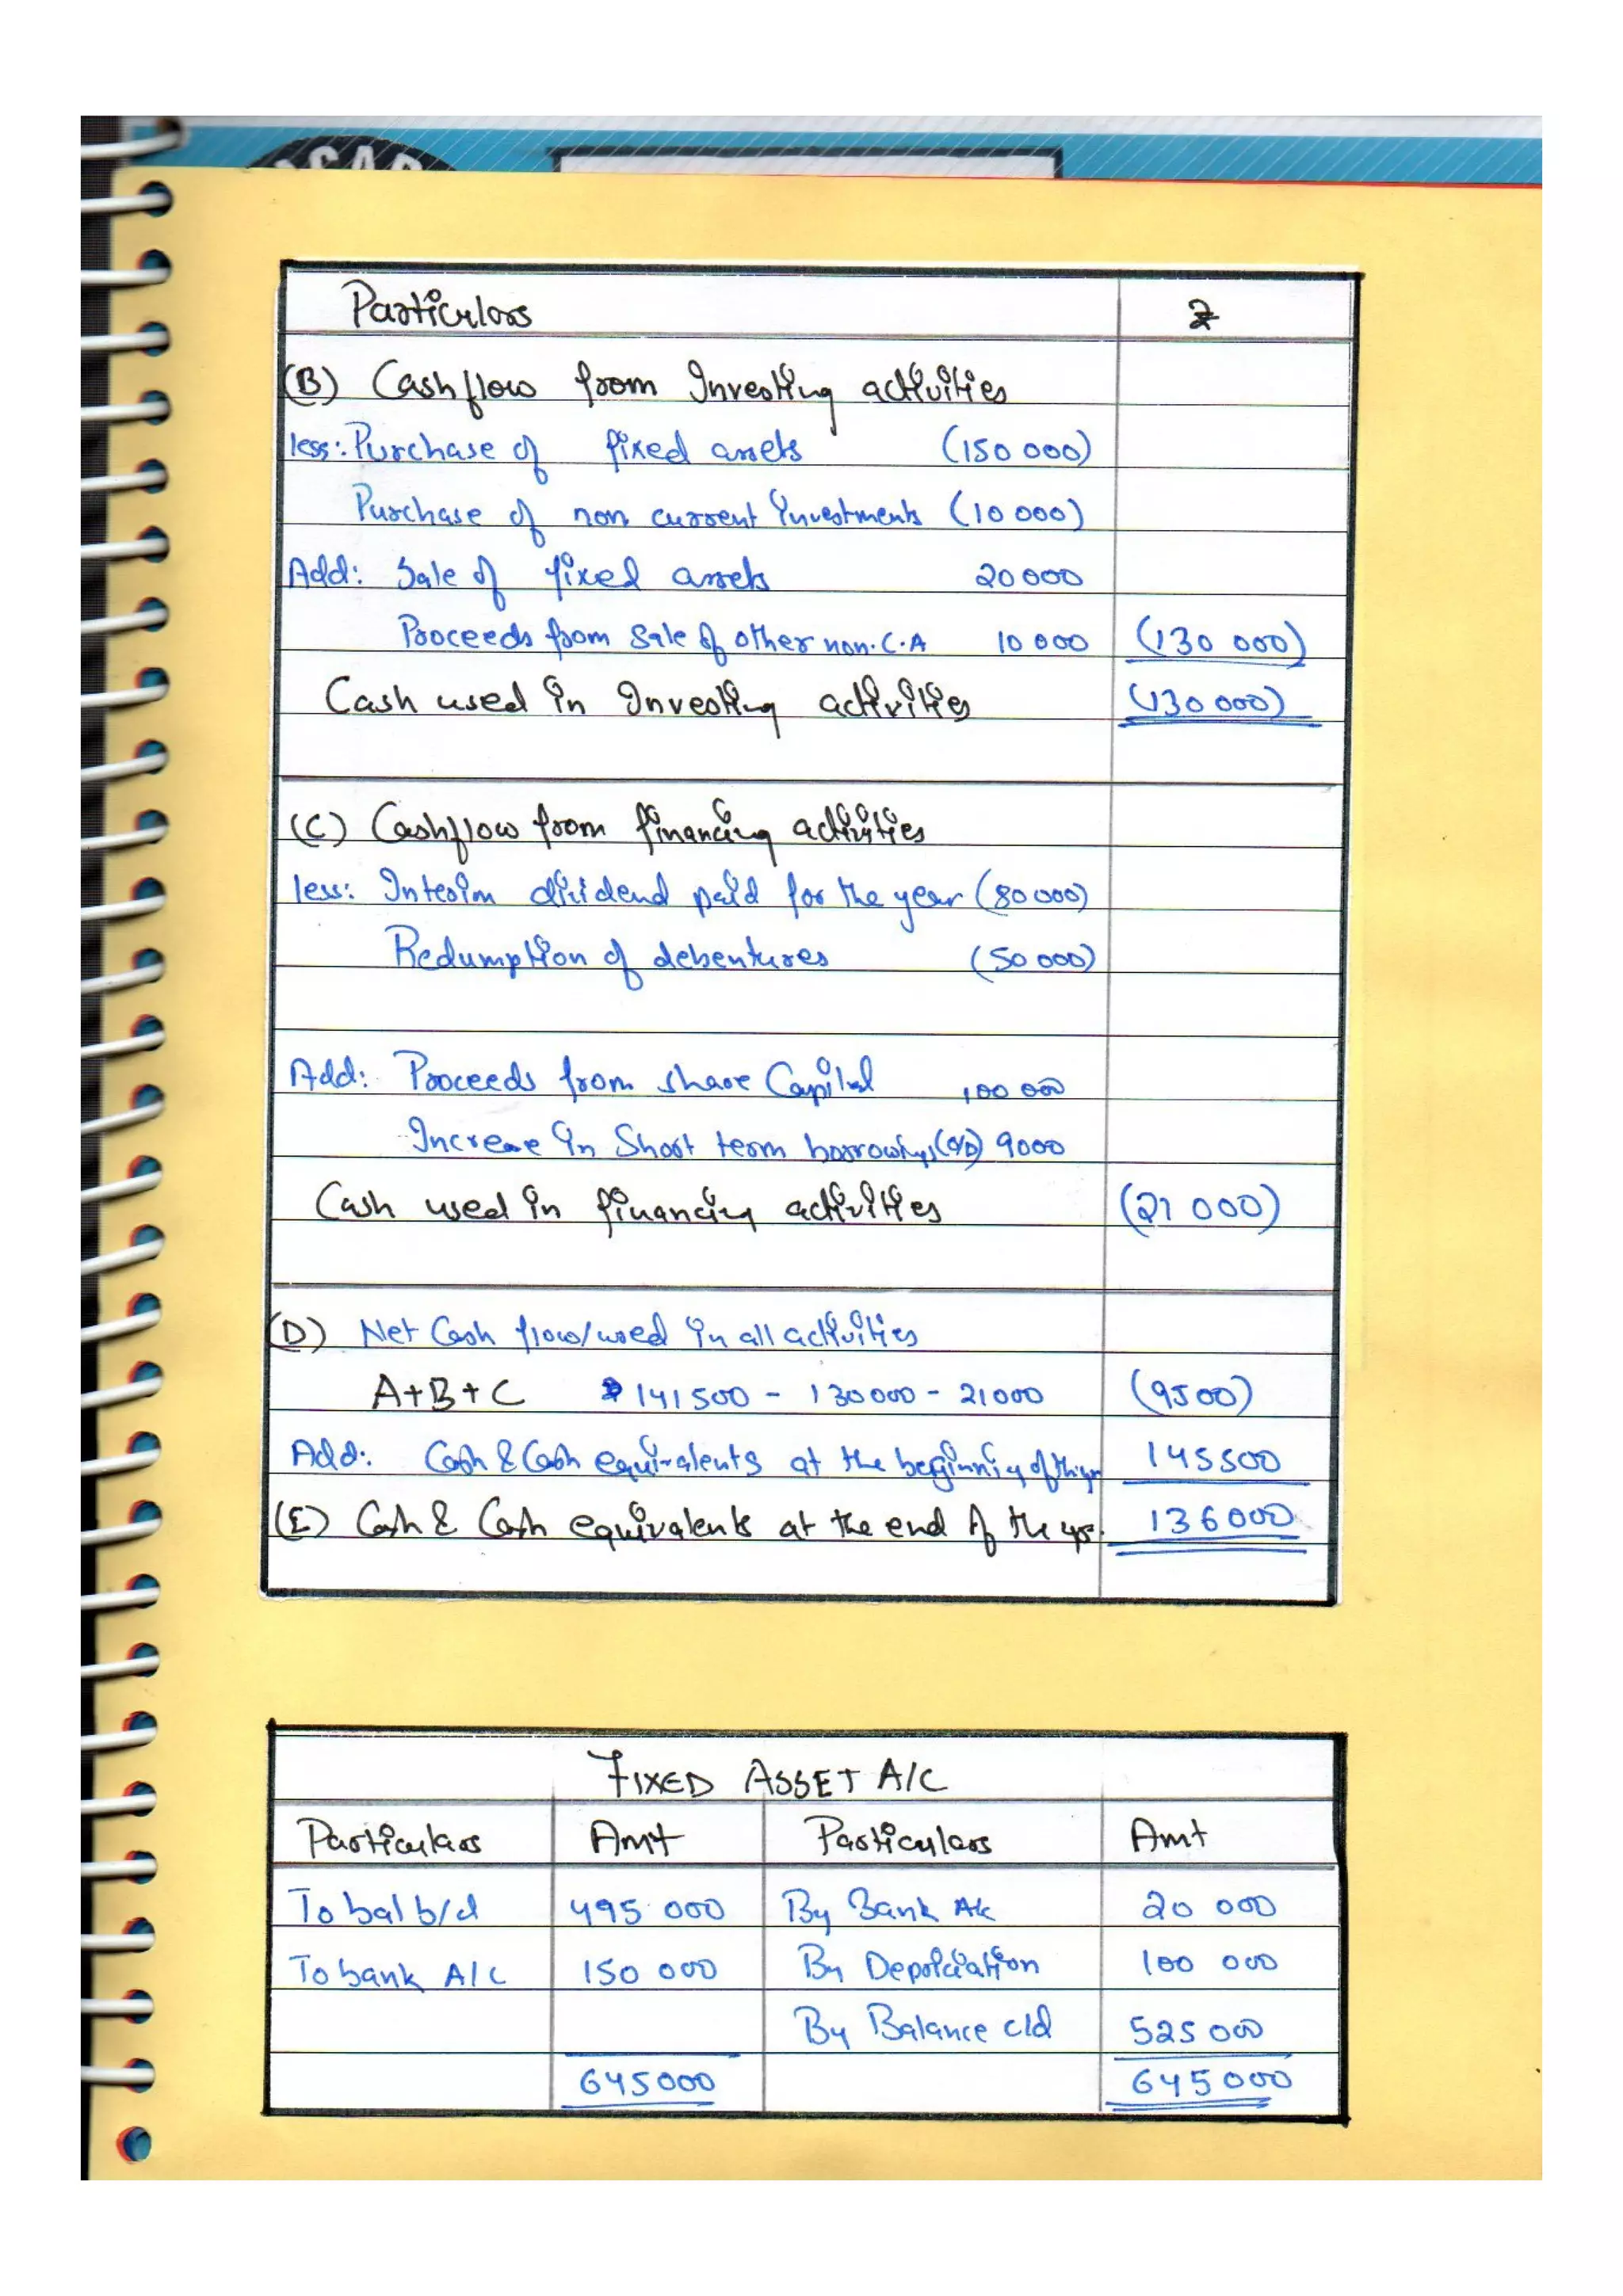 ACAD
Particulars ₹
(B) Cashflow from Investing activities
less: Purchase of fixed assets (150 000)
Purchase of non current Investments (10 000)
Add: Sale of fixed assets 20 000
Proceeds from Sale of other non.C.A 10 000 (130 000)
Cash used in Investing activities (130 000)
(C) Cashflow from financing activities
less: Interim dividend paid for the year (80 000)
Redumption of debentures (50 000)
Add: Proceeds from share Capital 100 000
Increase in Short term borrowings (O/D) 9000
Cash used in financing activities (21 000)
(D) Net Cash flow/used in all activities
A+B+C 141 500 - 130 000 - 21000 (9500)
Add: Cash & Cash equivalents at the beginning of the yr 145500
(E) Cash & Cash equivalents at the end of the yr. 136000
FIXED ASSET A/C
Particulars Amt Particulars Amt
To bal b/d 495 000 By Bank A/c 20 000
To bank A/C 150 000 By Depriciation 100 000
By Balance c/d 525 000
645000 645000